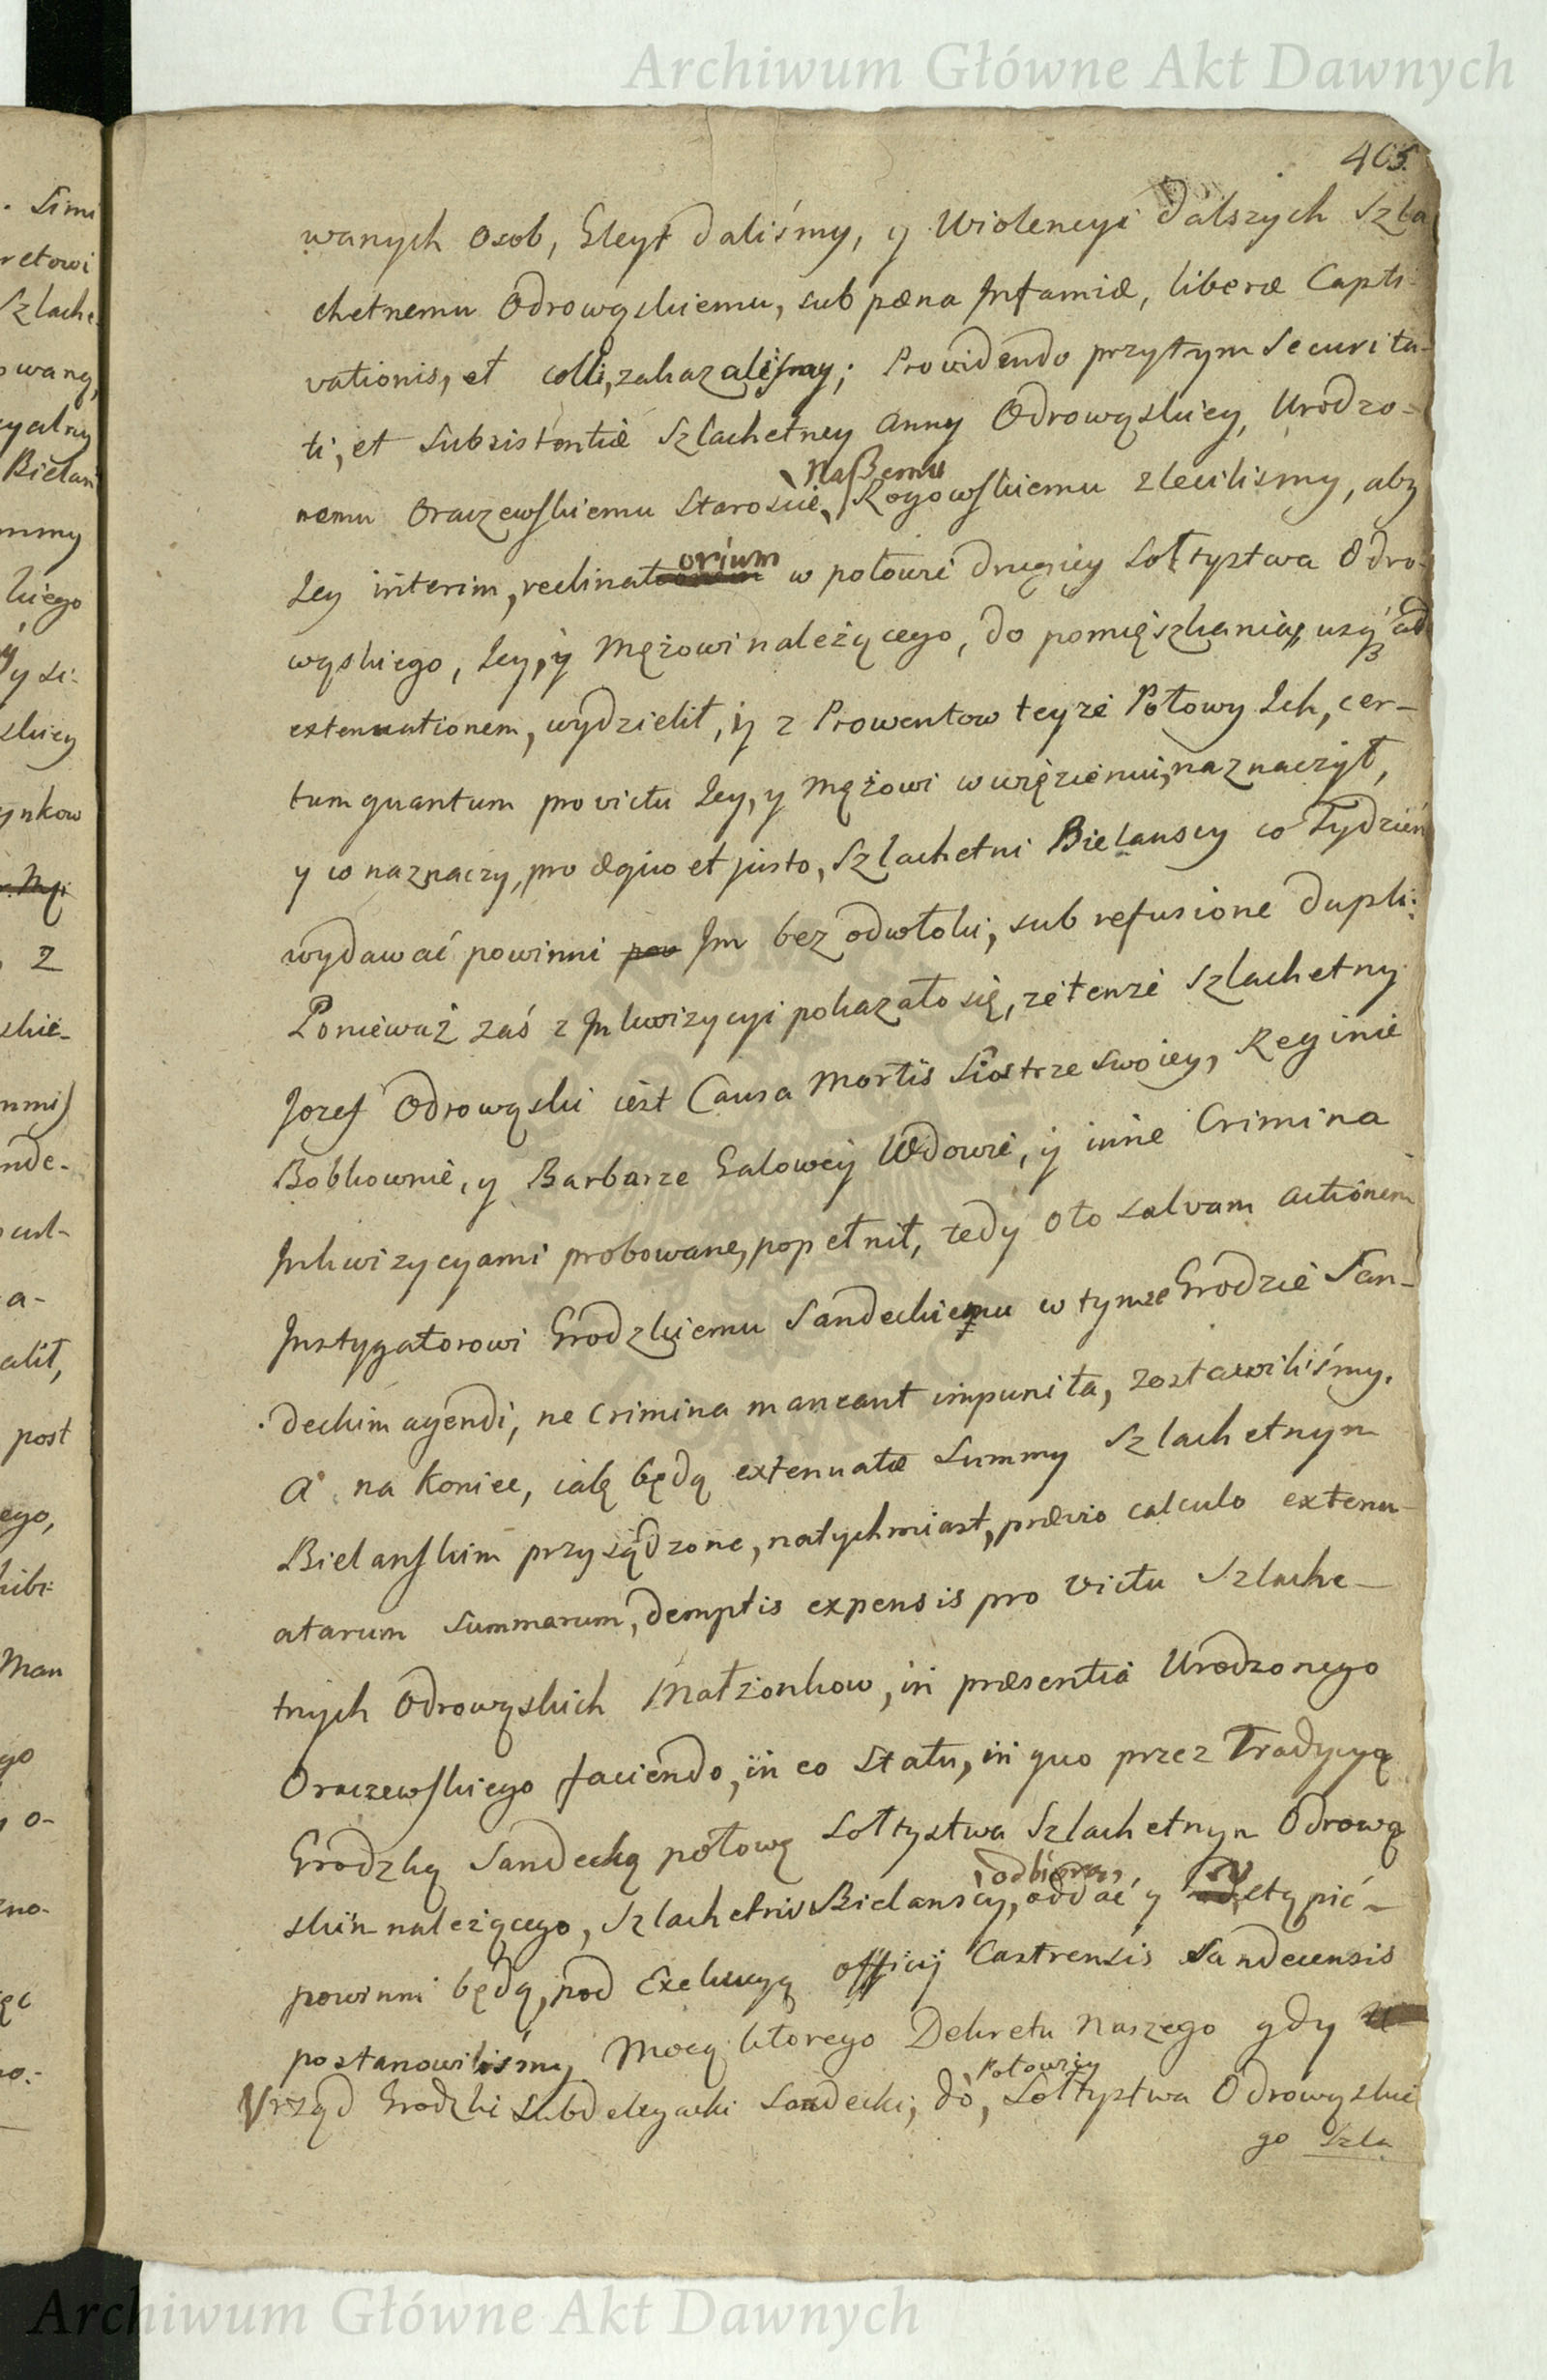 Archiwum Główne Akt Dawnych
405.
wanych osob, Gleyt daliśmy, y Wiolencyi dalszych Szla
chetnemu Odrowąskiemu, sub pæna Infamiæ, liberæ Capti-
vationis, et colli, zakazaliśmy; Providendo przytym Securita-
ti, et Subsistentiæ Szlachetney Anny Odrowąskiey, Urodzo-
nemu Oraczewskiemu Staroście Naszemu Rogowskiemu zleciliśmy, aby
Jey interim, reclinatorium w połowie drugiey Sołtystwa Odro-
wąskiego, Jey, y Mężowi należącego, do pomięszkania, usq ad
extenuationem, wydzielił, y z Prowentow teyże Połowy Ich, cer-
tum quantum pro victu Jey, y Mężowi w więzieniu, naznaczył,
y co naznaczy, pro æquo et justo, Szlachetni Bielanscy co Tydzień
wydawać powinni Im bez odwłoki, sub refusione dupli:
Ponieważ zaś z Inkwizycyi pokazało się, że tenże Szlachetny
Jozef Odrowąski iest Causa Mortis Siostrze swoiey, Reginie
Bobkownie, y Barbarze Galowey Wdowie, y inne Crimina
Inkwizycyami probowane, popełnił, tedy oto salvam actionem
Instygatorowi Grodzkiemu Sandeckiemu w tymże Grodzie San-
deckim agendi, ne Crimina maneant impunita, zostawiliśmy.
A na Koniec, iak będą extenuatæ Summy Szlachetnym
Bielanskim przysądzone, natychmiast, prævio calculo extenu-
atarum Summarum, demptis expensis pro Victu Szlache-
tnych Odrowąskich Małżonkow, in præsentia Urodzonego
Oraczewskiego faciendo, in eo Statu, in quo przez Tradycyą
Grodzką Sandecką połowę Sołtystwa Szlachetnym Odrową
skim należącego, Szlachetni Bielanscy, odbiorą, oddać y ustąpić
powinni będą, pod Exekucyą Officij Castrensis Sandecensis
postanowiliśmy Mocą ktorego Dekretu Naszego gdy
Vrząd Grodzki Subdelegacki Sandecki, do, Połowicy Sołtystwa Odrowąskie
go Szla
Archiwum Główne Akt Dawnych